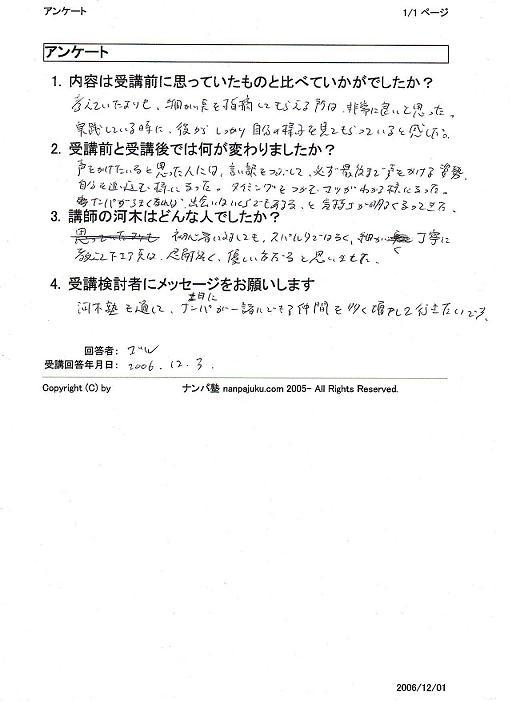 アンケート 1/1 ページ
アンケート
1. 内容は受講前に思っていたものと比べていかがでしたか？
考えていたよりも、細かい点を指摘してもらえる所は、非常に良いと思った。
実践している時に、後から しっかり 自分の様子を見てもらっていると感じた。
2. 受講前と受講後では何が変わりましたか？
声をかけたいと思った人には、言い訳をつくらないで、必ず最後まで声をかける姿勢
自分を追い込む様になった。タイミングをつかむ
ナンパがうまくなれば、出会いはいくらでもある、と気持ちが明るくなってきた。
3. 講師の河木はどんな人でしたか？
思っていたよりも 初心者に対しても、スパルタではなく、細かく丁寧に
教えて下さる、優しい方だと思いました。
4. 受講検討者にメッセージをお願いします
河木塾を通して、真面目にナンパが一緒にできる仲間を多く増やして行きたいです。
回答者：
受講回答年月日： 2006. 12. 3.
Copyright (C) by ナンパ塾 nanpajuku.com 2005- All Rights Reserved.
2006/12/01